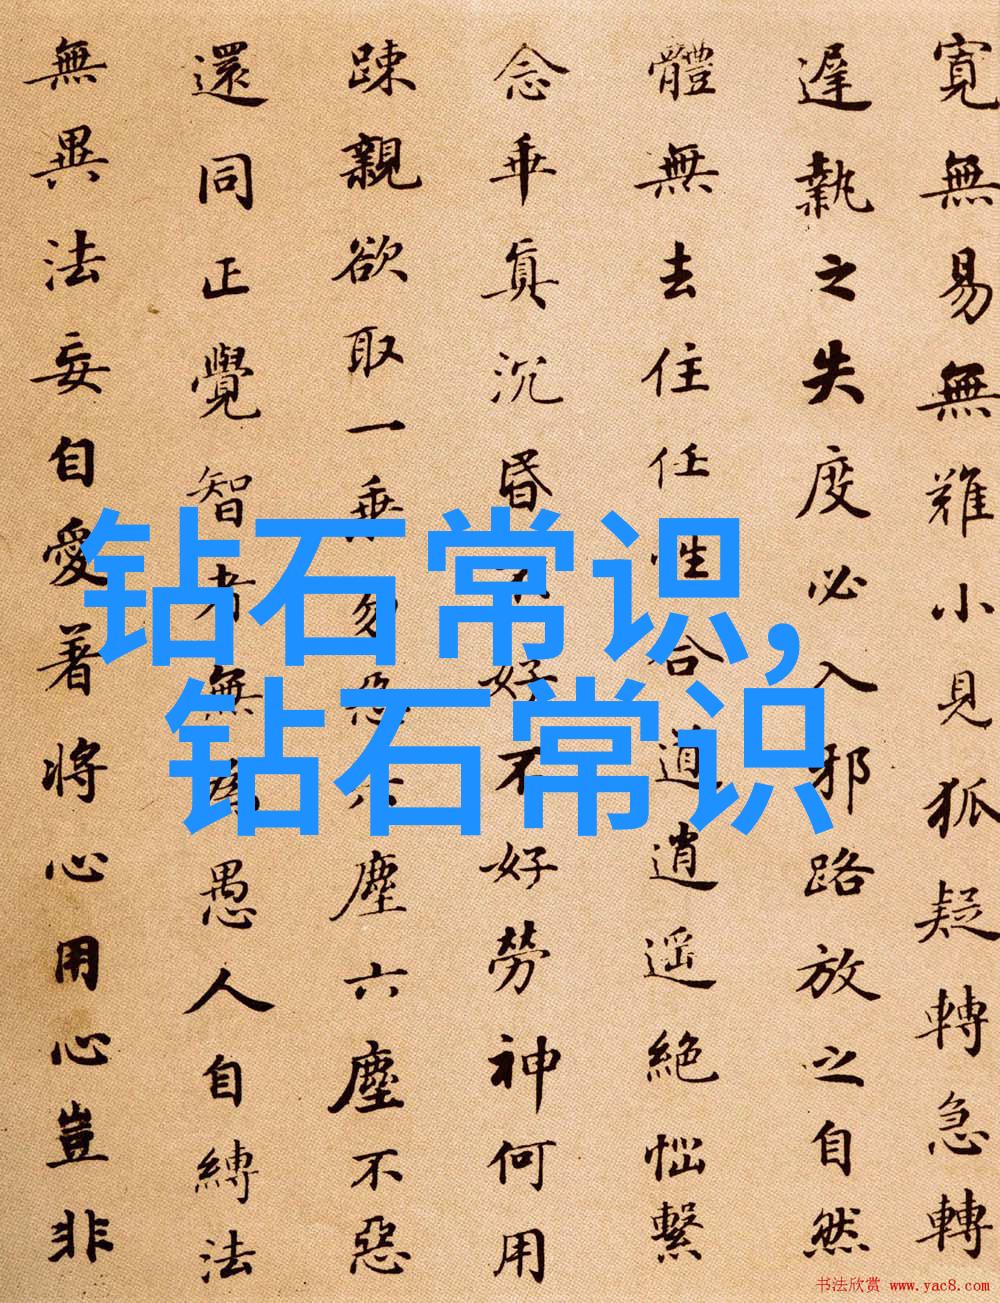 寬無易無難小見狐疑轉急轉
遲執之失度必入邪路放之自然
體無去住任性合道逍遥絕惱繫
念乖真沉昏不好不好勞神何用
踈親欲取一乘勿惡六塵六塵不惡
還同正覺智者無為愚人自縛法
無異法妄自愛著將心用心豈非
钻石常识,
钻石常识
书法欣赏 www.yac8.com